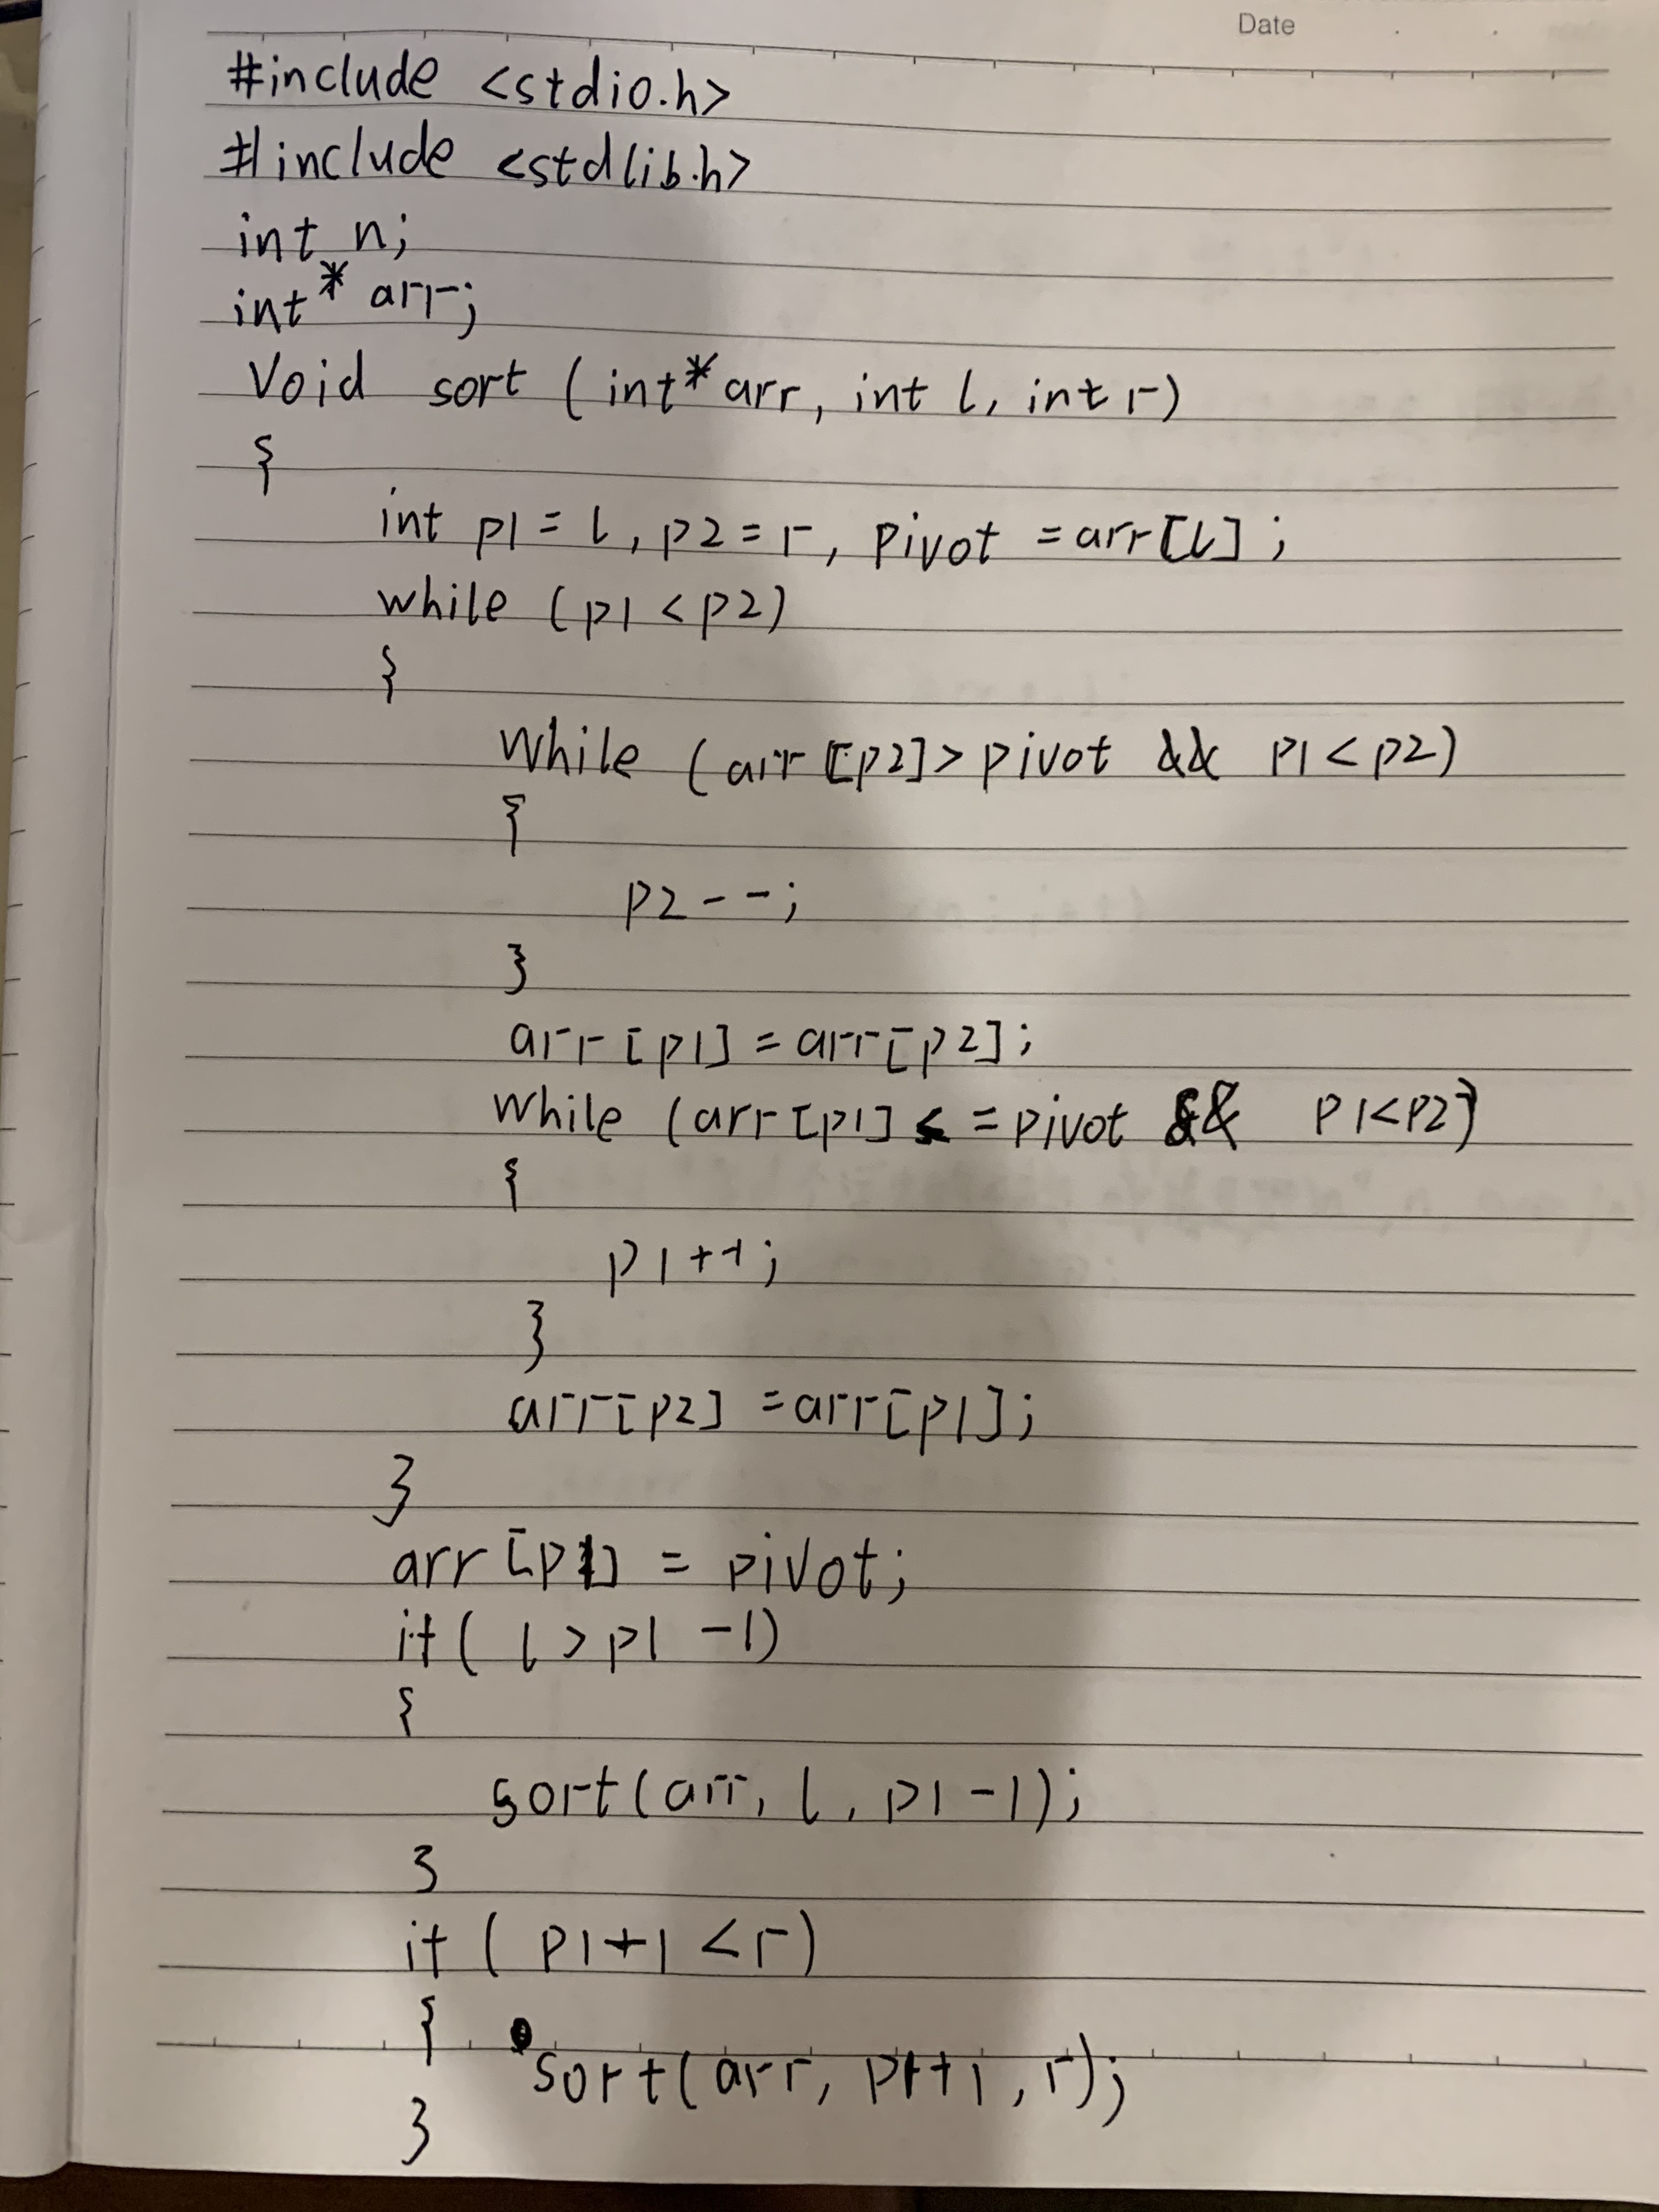 Date
#include <stdio.h>
#include <stdlib.h>
int n;
int* arr;
Void sort (int* arr, int l, int r)
{
int p1 = l, p2 = r, pivot = arr[l];
while (p1 < p2)
{
while (arr[p2] > pivot && p1 < p2)
{
p2--;
}
arr[p1] = arr[p2];
while (arr[p1] <= pivot && p1<p2)
{
p1++;
}
arr[p2] = arr[p1];
}
arr[p1] = pivot;
if( l > p1 -1)
{
sort(arr, l, p1-1);
}
if ( p1+1 < r)
{
sort(arr, p1+1, r);
}